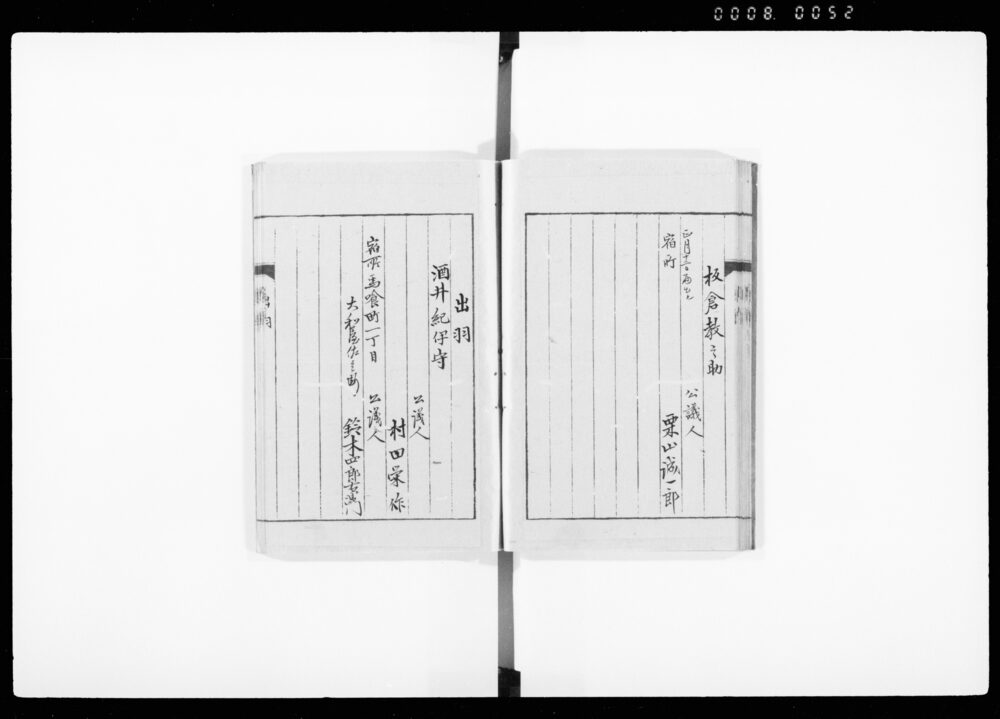 0008. 0052
板倉教之助
公議人
正月十三日届出ル
宿所
栗山誠一郎
出羽
酒井紀伊守
公議人
村田栄作
宿所馬喰町一丁目
公議人
大和屋佐之助
鈴木四郎右衛門